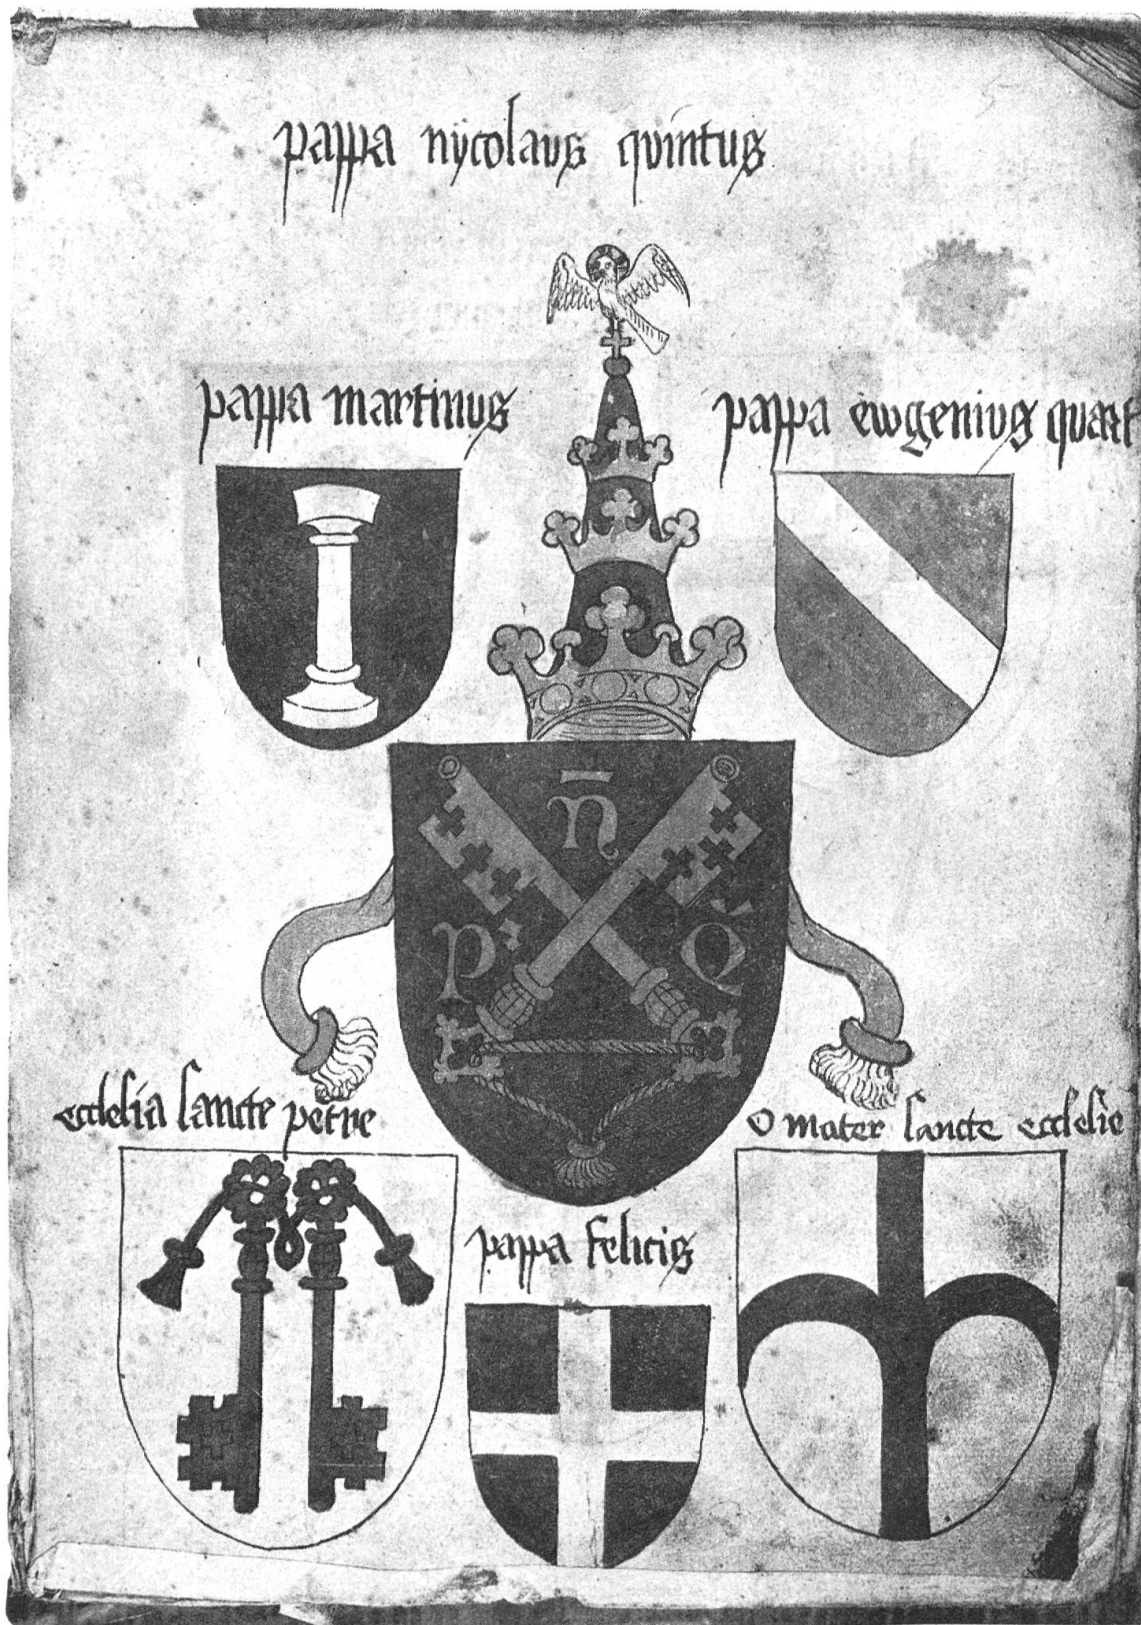 pappa nÿcolaus quintus
pappa martinus
pappa ewgenius quart
n̄
p
Q
ecclesia sancte petre
o mater sancte ecclesie
pappa felicis